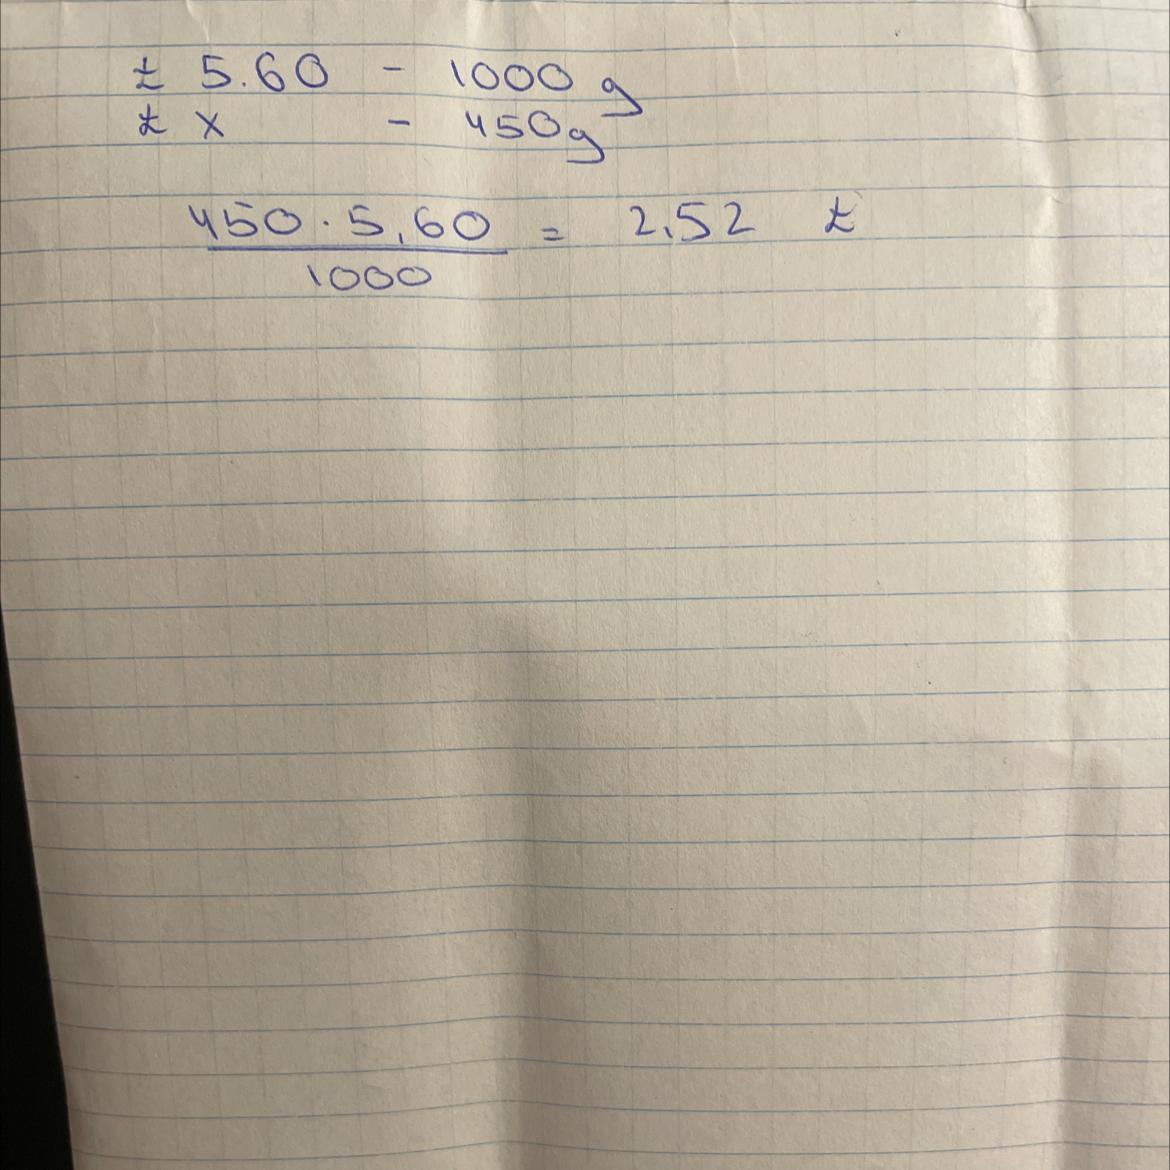 £ 5.60 - 1000 g
£ x - 450g
450 · 5,60 = 2,52 £
1000